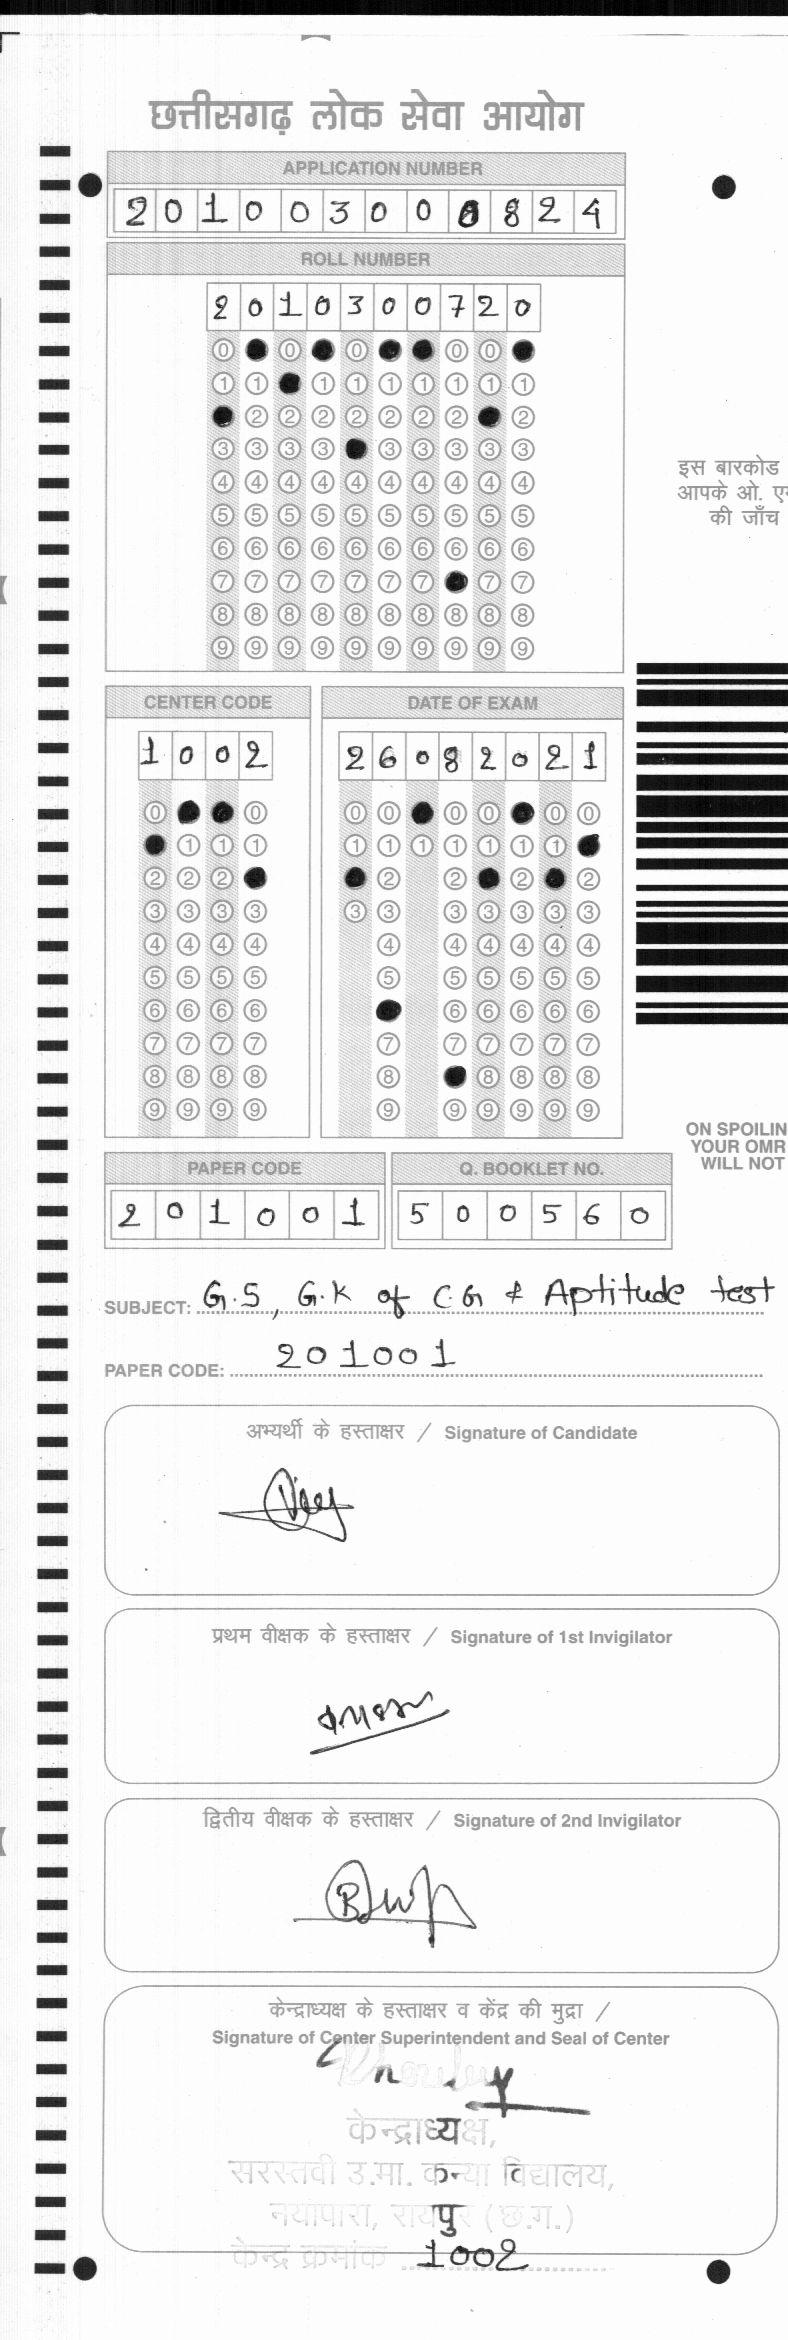 छत्तीसगढ़ लोक सेवा आयोग
APPLICATION NUMBER
2 0 1 0 0 3 0 0 0 8 2 4
ROLL NUMBER
2 0 1 0 3 0 0 7 2 0
0 0 0 0 0
1 1 1 1 1 1 1 1 1
2 2 2 2 2 2 2 2
3 3 3 3 3 3 3 3 3
4 4 4 4 4 4 4 4 4 4
5 5 5 5 5 5 5 5 5 5
6 6 6 6 6 6 6 6 6 6
7 7 7 7 7 7 7 7 7
8 8 8 8 8 8 8 8 8 8
9 9 9 9 9 9 9 9 9 9
इस बारकोड
आपके ओ.
की जाँच
CENTER CODE
1 0 0 2
0 0
1 1 1
2 2 2
3 3 3 3
4 4 4 4
5 5 5 5
6 6 6 6
7 7 7 7
8 8 8 8
9 9 9 9
DATE OF EXAM
2 6 0 8 2 0 2 1
0 0 0 0 0 0
1 1 1 1 1 1 1
2 2 2 2
3 3 3 3 3 3 3
4 4 4 4 4 4
5 5 5 5 5 5
6 6 6 6 6
7 7 7 7 7 7
8 8 8 8 8
9 9 9 9 9 9
ON SPOILIN
YOUR OMR
WILL NOT
PAPER CODE
2 0 1 0 0 1
Q. BOOKLET NO.
5 0 0 5 6 0
SUBJECT: G.S, G.K of C.G & Aptitude test
PAPER CODE: 201001
अभ्यर्थी के हस्ताक्षर / Signature of Candidate
प्रथम वीक्षक के हस्ताक्षर / Signature of 1st Invigilator
द्वितीय वीक्षक के हस्ताक्षर / Signature of 2nd Invigilator
केन्द्राध्यक्ष के हस्ताक्षर व केंद्र की मुद्रा /
Signature of Center Superintendent and Seal of Center
केन्द्राध्यक्ष,
सरस्तवी उ.मा. कन्या विद्यालय,
नयापारा, रायपुर (छ.ग.)
केन्द्र क्रमांक 1002